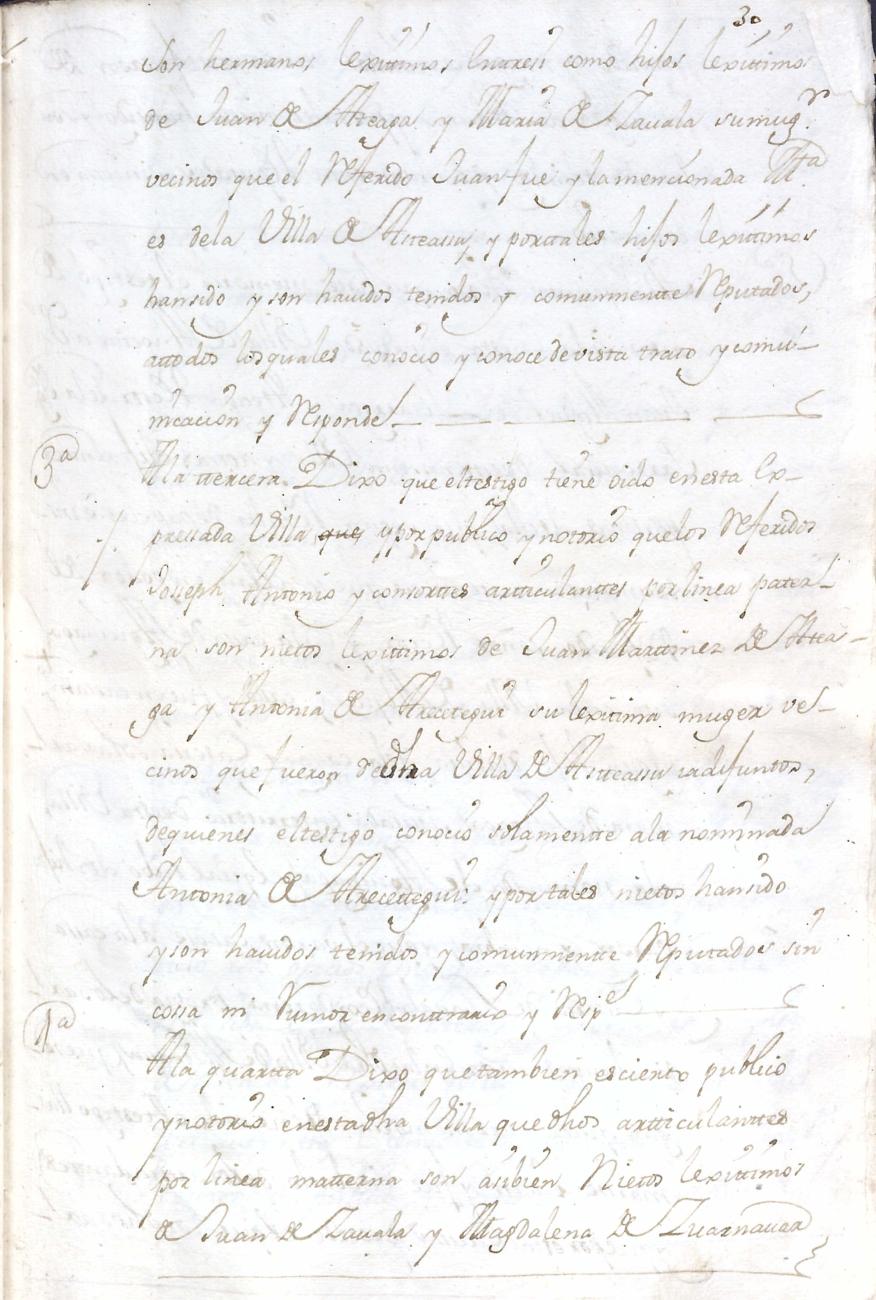 30
son hermanos lexittimos enttresi como hijos lexittimos
de Juan de Atteaga y Maria de Zauala sumugr.
vecinos que el Referido Juan fue y la mencionada Mta
es dela Villa de Asteassu, y porttales hijos lexittimos
hansido y son hauidos tenidos y comunmentte Reputados,
attodos losquales conocio y conoce de vista trato y comu-
nicacion y Responde
3a
Ala ttercera Dixo que eltestigo tiene oido enesta Ex-
pressada Villa que y por publico y notorio quelos Referidos
Joseph Antonio y consorttes artticulanttes por linea pater-
na son nietos lexittimos de Juan Marttinez de Attea-
ga y Antonia de Arecettegui su lexitima muger ve-
cinos que fueron de dha Villa de Asteassu ia difuntos,
dequienes eltestigo conocio solamentte ala nominada
Antonia de Arecettegui: y por tales nietos hansido
y son hauidos tenidos y comunmentte Reputados sin
cossa ni Rumor en conttrario y Respe
4a
Ala quartta Dixo que tambien es ciento publico
y notorio enesta dha Villa que dhos artticulanttes
por linea matterna son asibien Nietos lexittimos
de Juan de Zauala y Magdalena de Zuaznauar